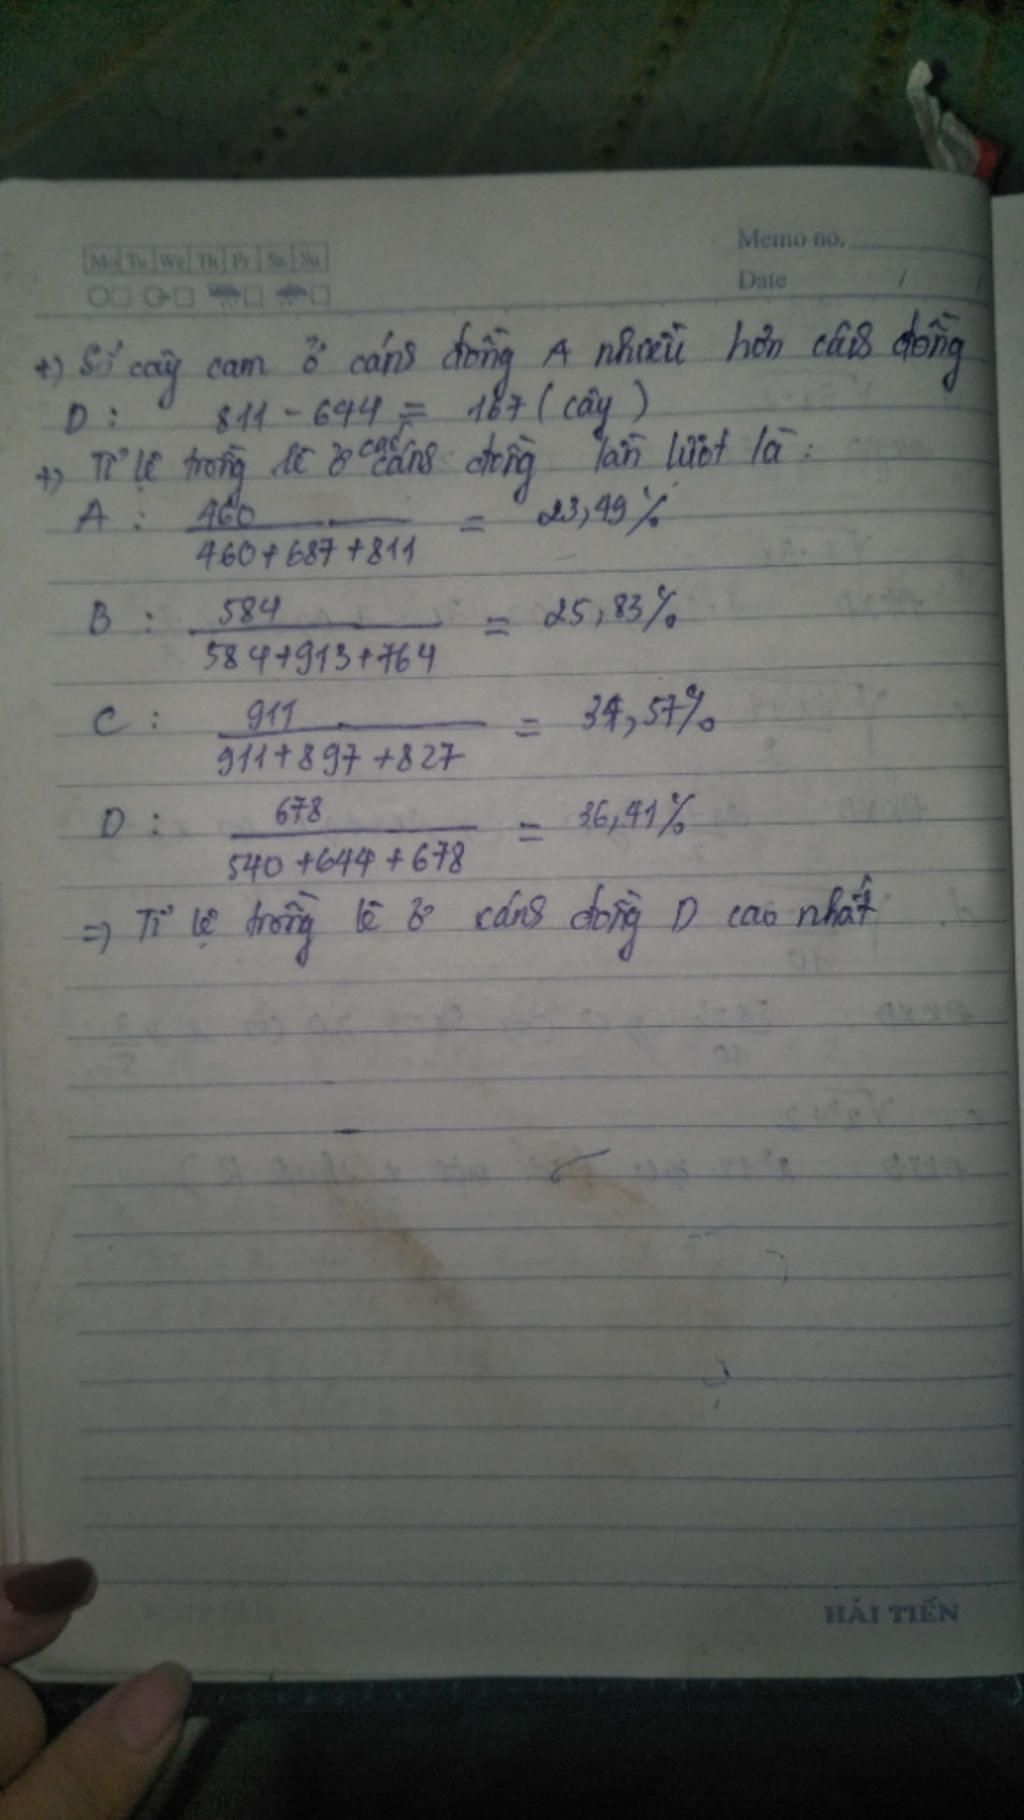 Mo Tu We Th Fr Sa Su
Memo no.
Date / /
+) Số cây cam ở cánh đồng A nhiều hơn cánh đồng
D : 811 - 644 = 167 (cây)
+) Tỉ lệ trồng lê ở các cánh đồng lần lượt là :
A : 460 / 460+687+811 = 23,49%
B : 584 / 584+913+764 = 25,83%
C : 911 / 911+897+827 = 34,57%
D : 678 / 540+644+678 = 36,41%
=> Tỉ lệ trồng lê ở cánh đồng D cao nhất
HẢI TIẾN